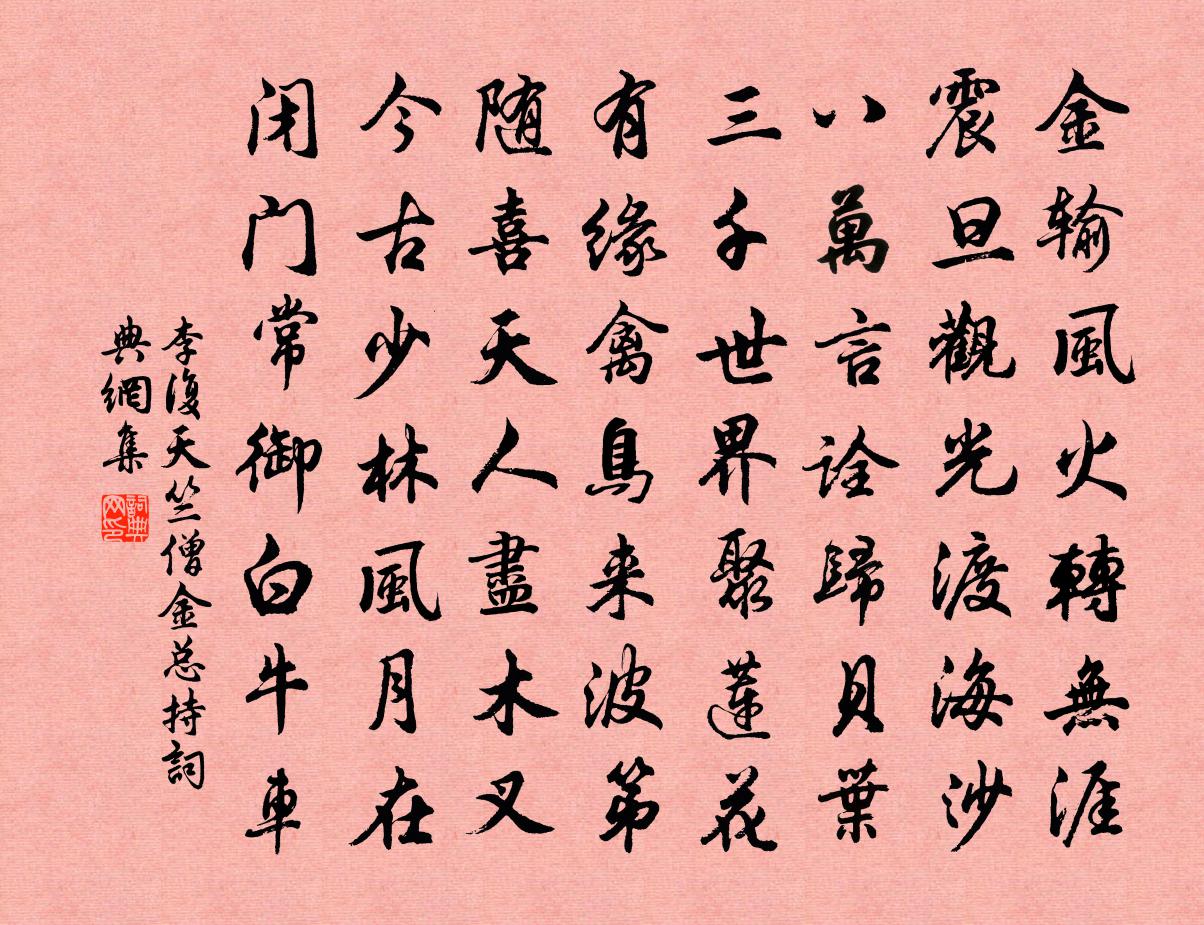 金輸風火轉無涯
震旦觀光渡海沙
八萬言詮歸貝葉
三千世界聚蓮花
有緣禽鳥来波第
随喜天人盡木叉
今古少林風月在
闭门常御白牛車
李復天竺僧金总持詞
典網集
詞典
网印